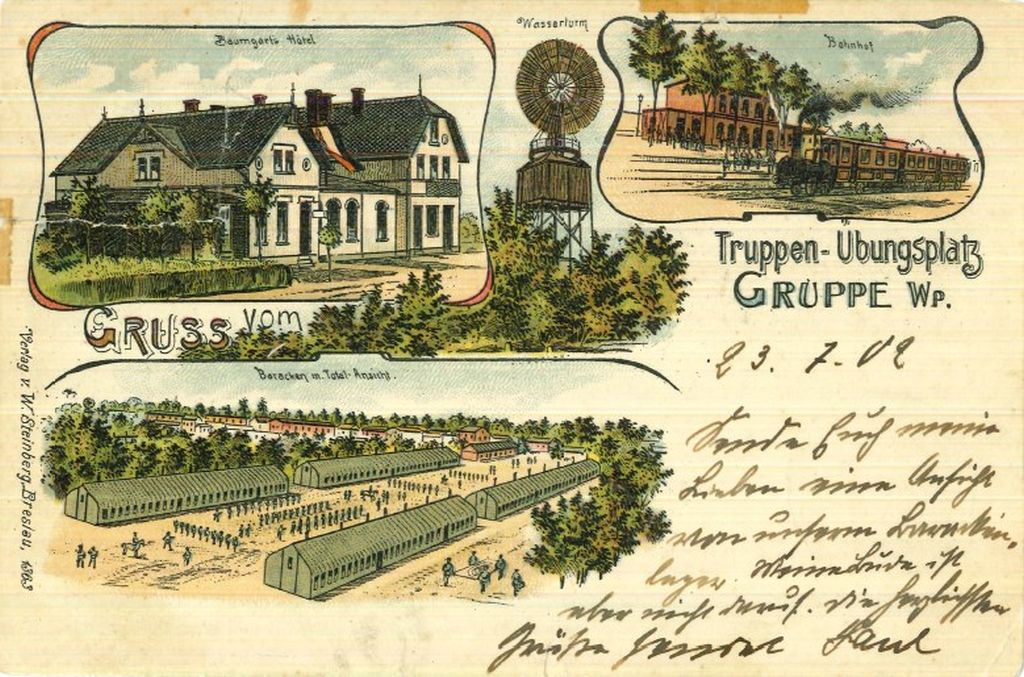 Baumgarts Hôtel
Wasserturm
Bahnhof
Truppen-Übungsplatz
GRUPPE WP.
GRUSS vom
Baracken m. Total-Ansicht.
Verlag v. W. Steinberg, Breslau, 1863
23. 7. 02
Sende Euch meine
Lieben eine Ansicht
von unserm Baracken-
lager Meine Bude ist
aber nicht darauf. Die herzlichsten
Grüße sendet Paul